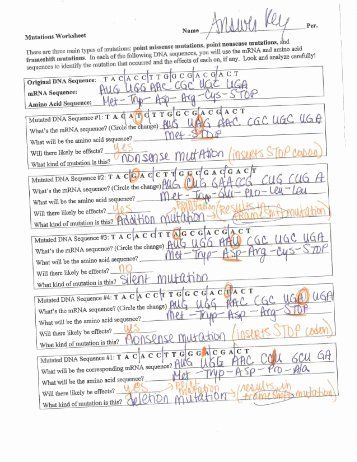 Name Answer Key Per.
Mutations Worksheet
There are three main types of mutations: point missense mutations, point nonsense mutations, and
frameshift mutations. In each of the following DNA sequences, you will use the mRNA and amino acid
sequences to identify the mutation that occurred and the effects of each on, if any. Look and analyze carefully!
Original DNA Sequence: T A C A C C T T G G C G A C G A C T
mRNA Sequence: AUG UGG AAC CGC UGC UGA
Amino Acid Sequence: Met - Tryp - Asp - Arg - Cys - STOP
Mutated DNA Sequence #1: T A C A T C T T G G C G A C G A C T
What's the mRNA sequence? (Circle the change) AUG UAG AAC CGC UGC UGA
What will be the amino acid sequence? Met - STOP
Will there likely be effects? yes
What kind of mutation is this? nonsense mutation (inserts STOP codon)
Mutated DNA Sequence #2:
What's the mRNA sequence? (Circle the change) AUG CUG GAACCG CUG CUG A
What will be the amino acid sequence? Met - - Glu - Pro - Leu - Leu
Will there likely be effects? yes
What kind of mutation is this? Addition mutation (results in frameshift mutation)
Mutated DNA Sequence #3:
What's the mRNA sequence? (Circle the change) AUG UGG AAU CGC UGC UGA
What will be the amino acid sequence? Met - Tryp - Asp - Arg - Cys - STOP
Will there likely be effects? no
What kind of mutation is this? silent mutation
Mutated DNA Sequence #4:
What's the mRNA sequence? (Circle the change) AUG UGG AAC CGC UGA UGA
What will be the amino acid sequence? Met - Tryp - Asp - Arg - STOP
Will there likely be effects? yes
What kind of mutation is this? Nonsense mutation (inserts STOP codon)
Mutated DNA Sequence
What will be the corresponding mRNA sequence? AUG UGG AAC GCU GA
What will be the amino acid sequence? Met - Tryp - Asp - Pro - Ala
Will there likely be effects? yes
What kind of mutation is this? deletion mutation (results in frameshift mutation)